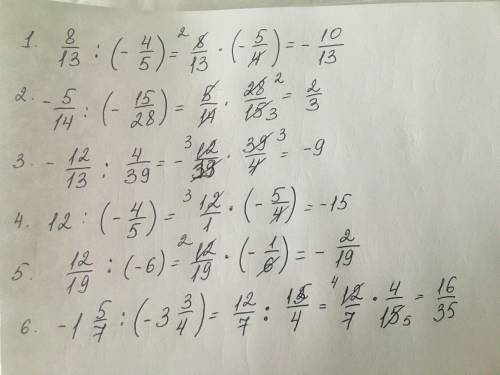 1. 8/13 : (- 4/5) = ² 8/13 · (- 5/4) = - 10/13
2. - 5/14 : (- 15/28) = 5/14 · 28/15 ² ₃ = 2/3
3. - 12/13 : 4/39 = - ³ 12/13 · 39/4 ³ = -9
4. 12 : (- 4/5) = ³ 12/1 · (- 5/4) = -15
5. 12/19 : (-6) = ² 12/19 · (- 1/6) = - 2/19
6. -1 5/7 : (-3 3/4) = 12/7 : 15/4 = ⁴ 12/7 · 4/15 ₅ = 16/35